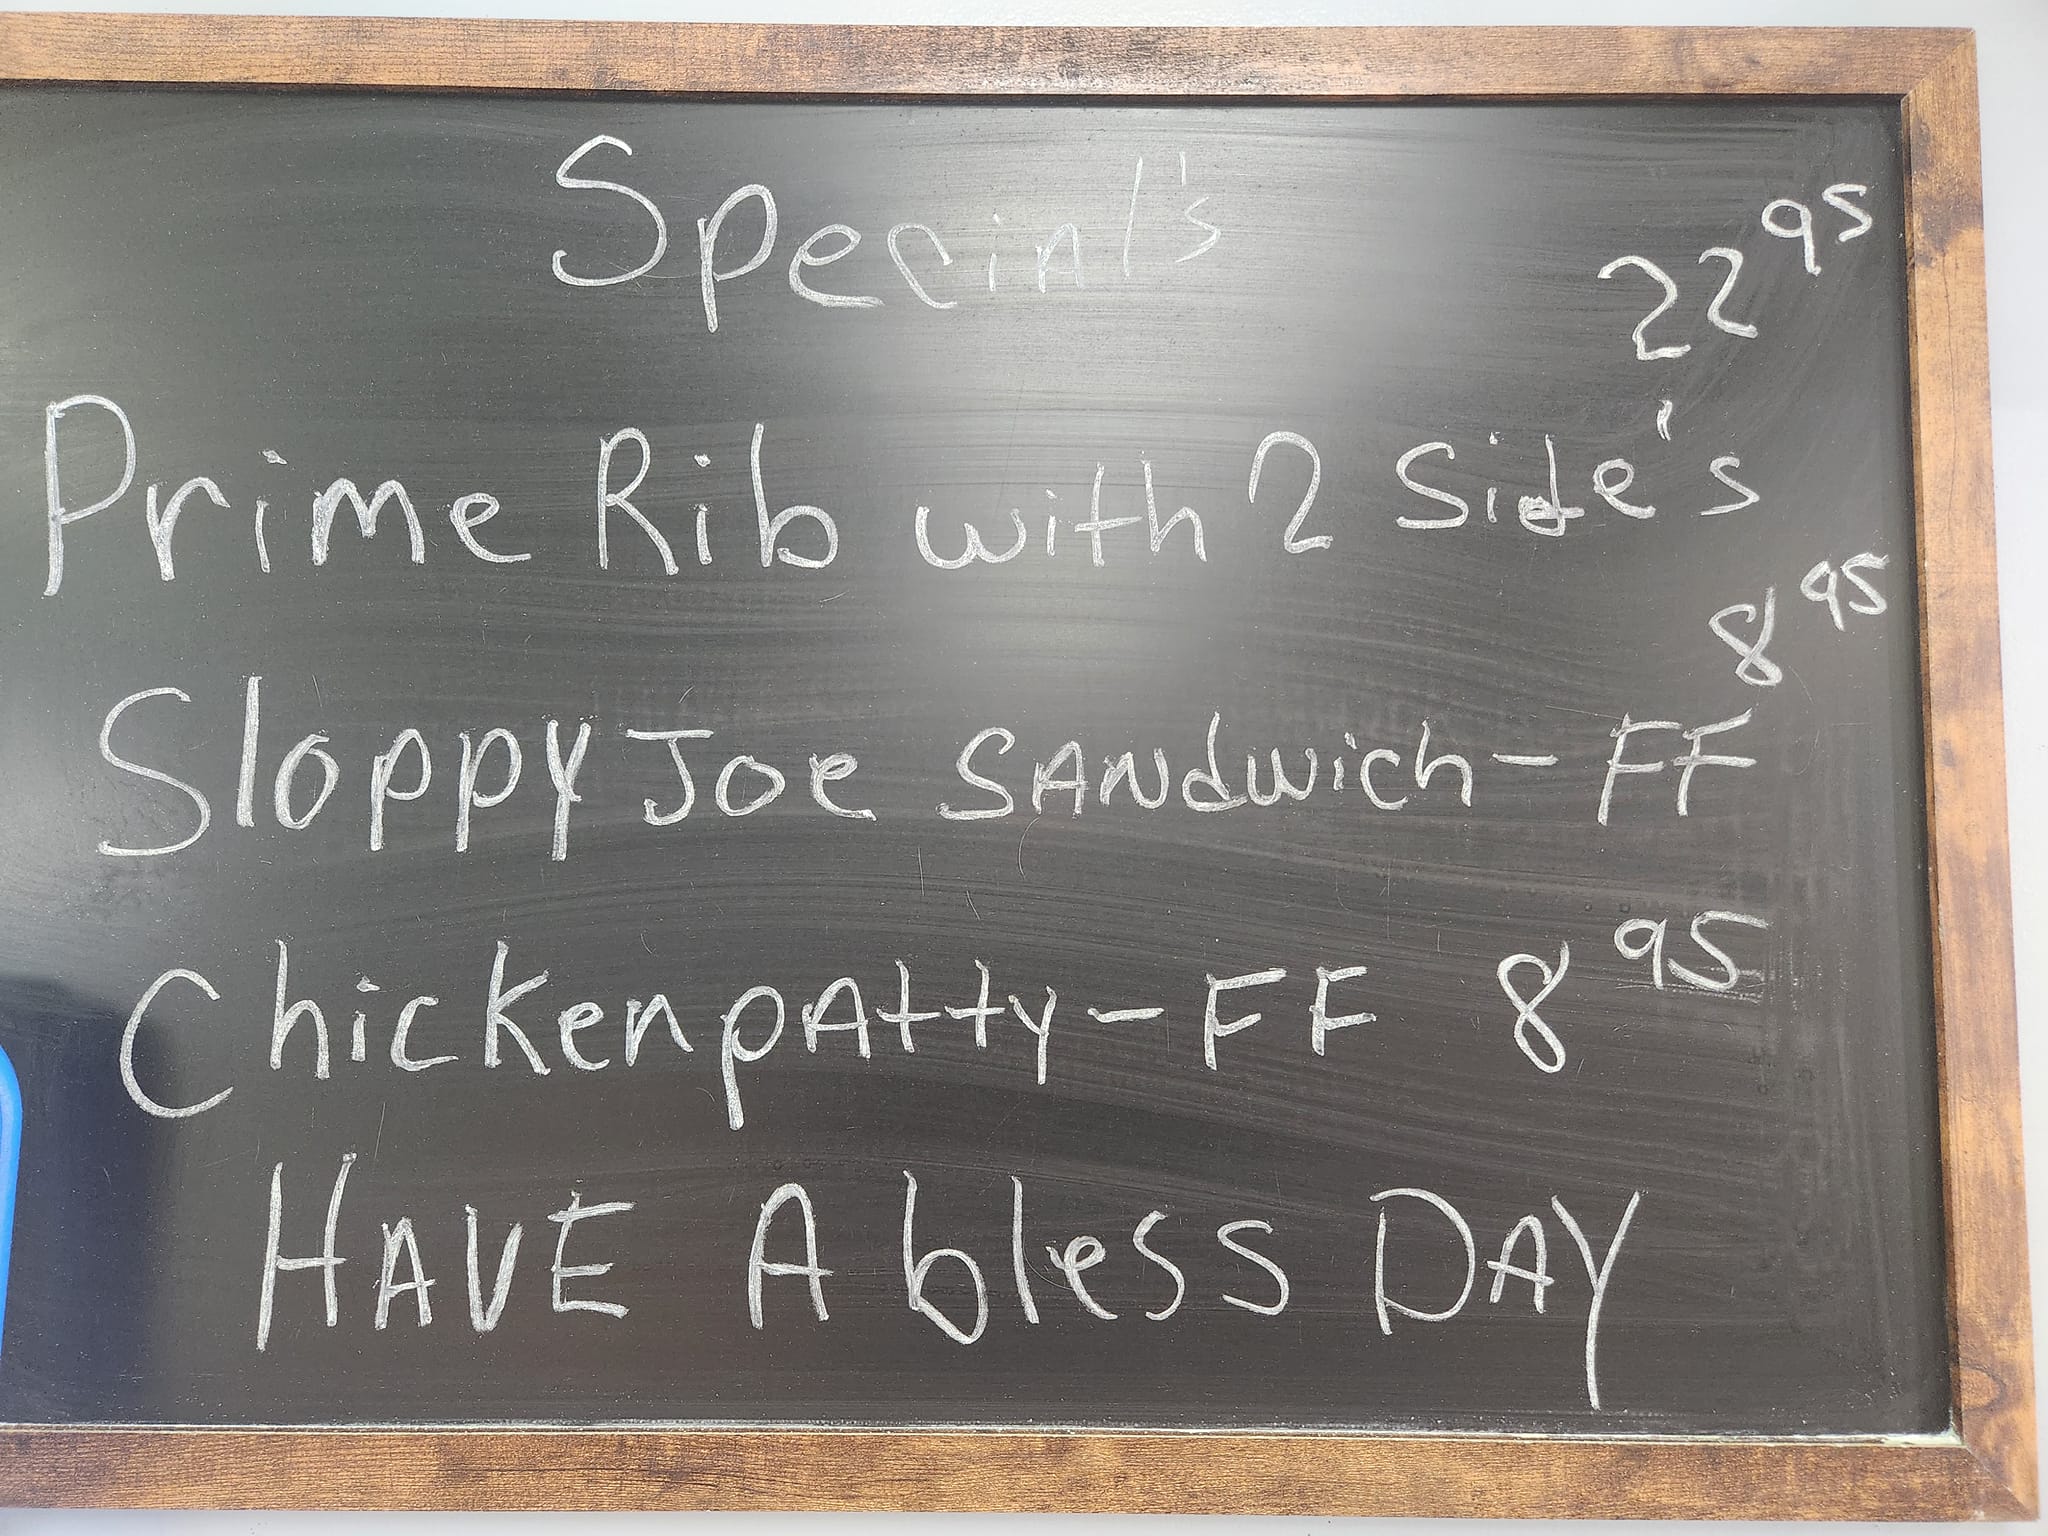 Special's
22 95
Prime Rib with 2 Side's
8 95
Sloppy Joe SANdwich - FF
Chicken pAtty - FF 8 95
HAVE A bless DAY